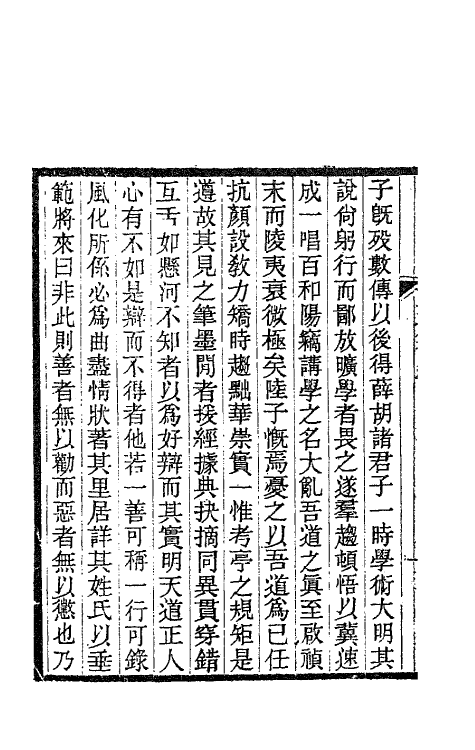 子旣殁數傳以後得薛胡諸君子一時學術大明其
說尙躬行而鄙放曠學者畏之遂羣趨頓悟以冀速
成一唱百和陽竊講學之名大亂吾道之眞至啟禎
末而陵夷衰微極矣陸子慨焉憂之以吾道爲己任
抗顏設敎力矯時趨黜華崇實一惟考亭之規矩是
遵故其見之筆墨閒者援經據典抉摘同異貫穿錯
互舌如懸河不知者以爲好辯而其實明天道正人
心有不如是辯而不得者他若一善可稱一行可錄
風化所係必爲曲盡情狀著其里居詳其姓氏以垂
範將來曰非此則善者無以勸而惡者無以懲也乃